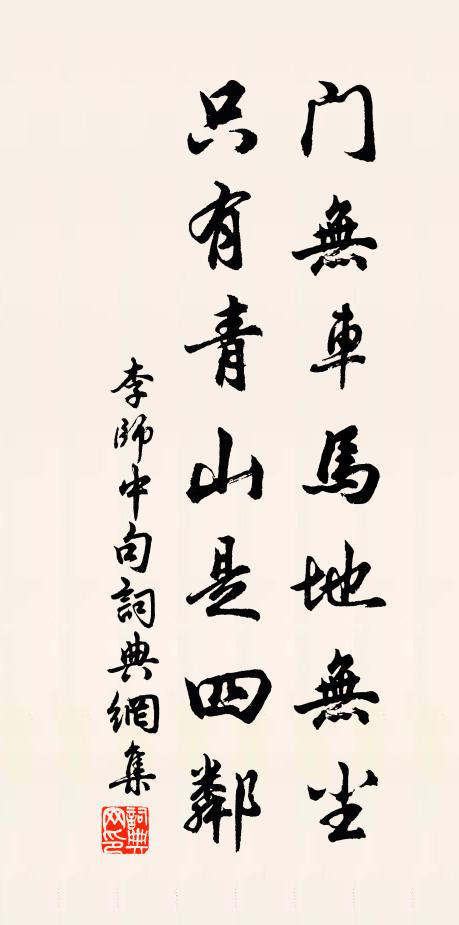 门無車馬地無尘
只有青山是四鄰
李師中句詞典網集
詞典
网印